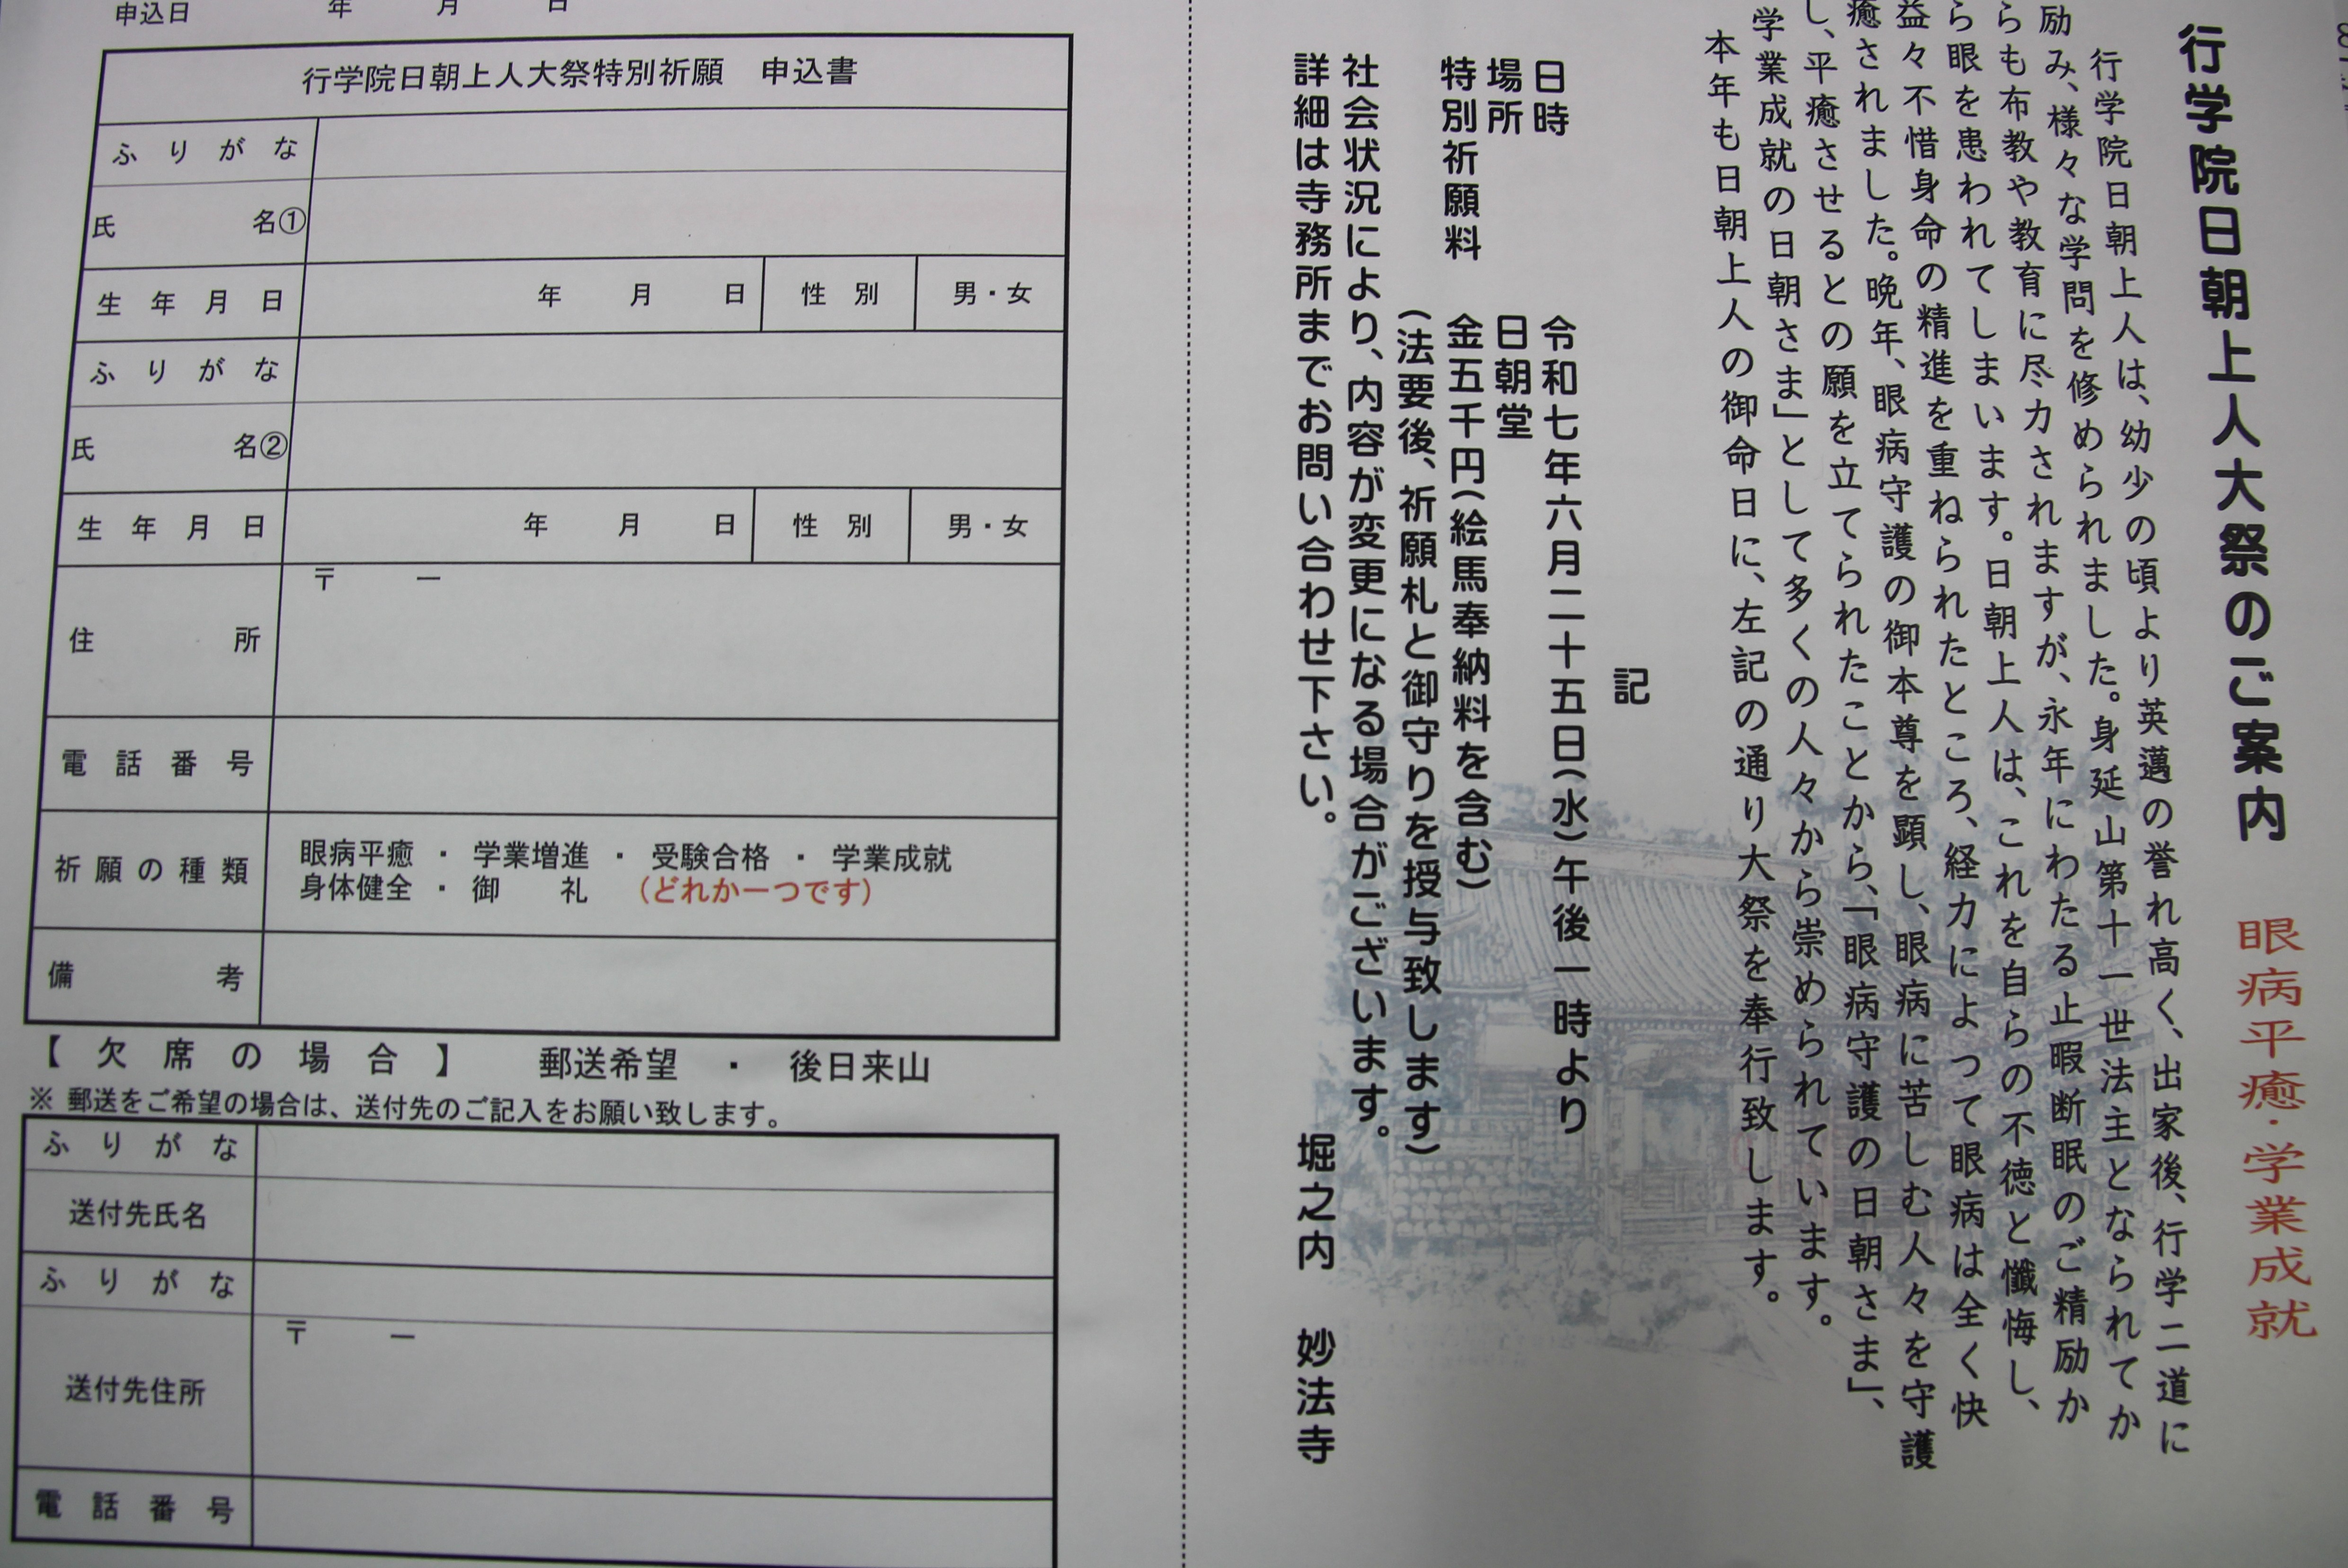 行学院日朝上人大祭のご案内　眼病平癒・学業成就
行学院日朝上人は、幼少の頃より英邁の誉れ高く、出家後、行学二道に
励み、様々な学問を修められました。身延山第十一世法主となられてか
らも布教や教育に尽力されますが、永年にわたる止暇断眠のご精励か
ら眼を患われてしまいます。日朝上人は、これを自らの不徳と懺悔し、
益々不惜身命の精進を重ねられたところ、経力によって眼病は全く快
癒されました。晩年、眼病守護の御本尊を顕し、眼病に苦しむ人々を守護
し、平癒させるとの願を立てられたことから、「眼病守護の日朝さま」、
学業成就の日朝さま」として多くの人々から崇められています。
本年も日朝上人の御命日に、左記の通り大祭を奉行致します。
記
日時　令和七年六月二十五日(水)午後一時より
場所　日朝堂
特別祈願料　金五千円(絵馬奉納料を含む)
(法要後、祈願札と御守りを授与致します)
社会状況により、内容が変更になる場合がございます。
詳細は寺務所までお問い合わせ下さい。
堀之内　妙法寺
申込日　年　月　日
行学院日朝上人大祭特別祈願　申込書
ふりがな
氏名①
生年月日　年　月　日　性別　男・女
ふりがな
氏名②
生年月日　年　月　日　性別　男・女
〒　ー
住所
電話番号
祈願の種類
眼病平癒 ・ 学業増進 ・ 受験合格 ・ 学業成就
身体健全 ・ 御　礼　(どれか一つです)
備考
【欠席の場合】　郵送希望 ・ 後日来山
※ 郵送をご希望の場合は、送付先のご記入をお願い致します。
ふりがな
送付先氏名
ふりがな
〒　ー
送付先住所
電話番号